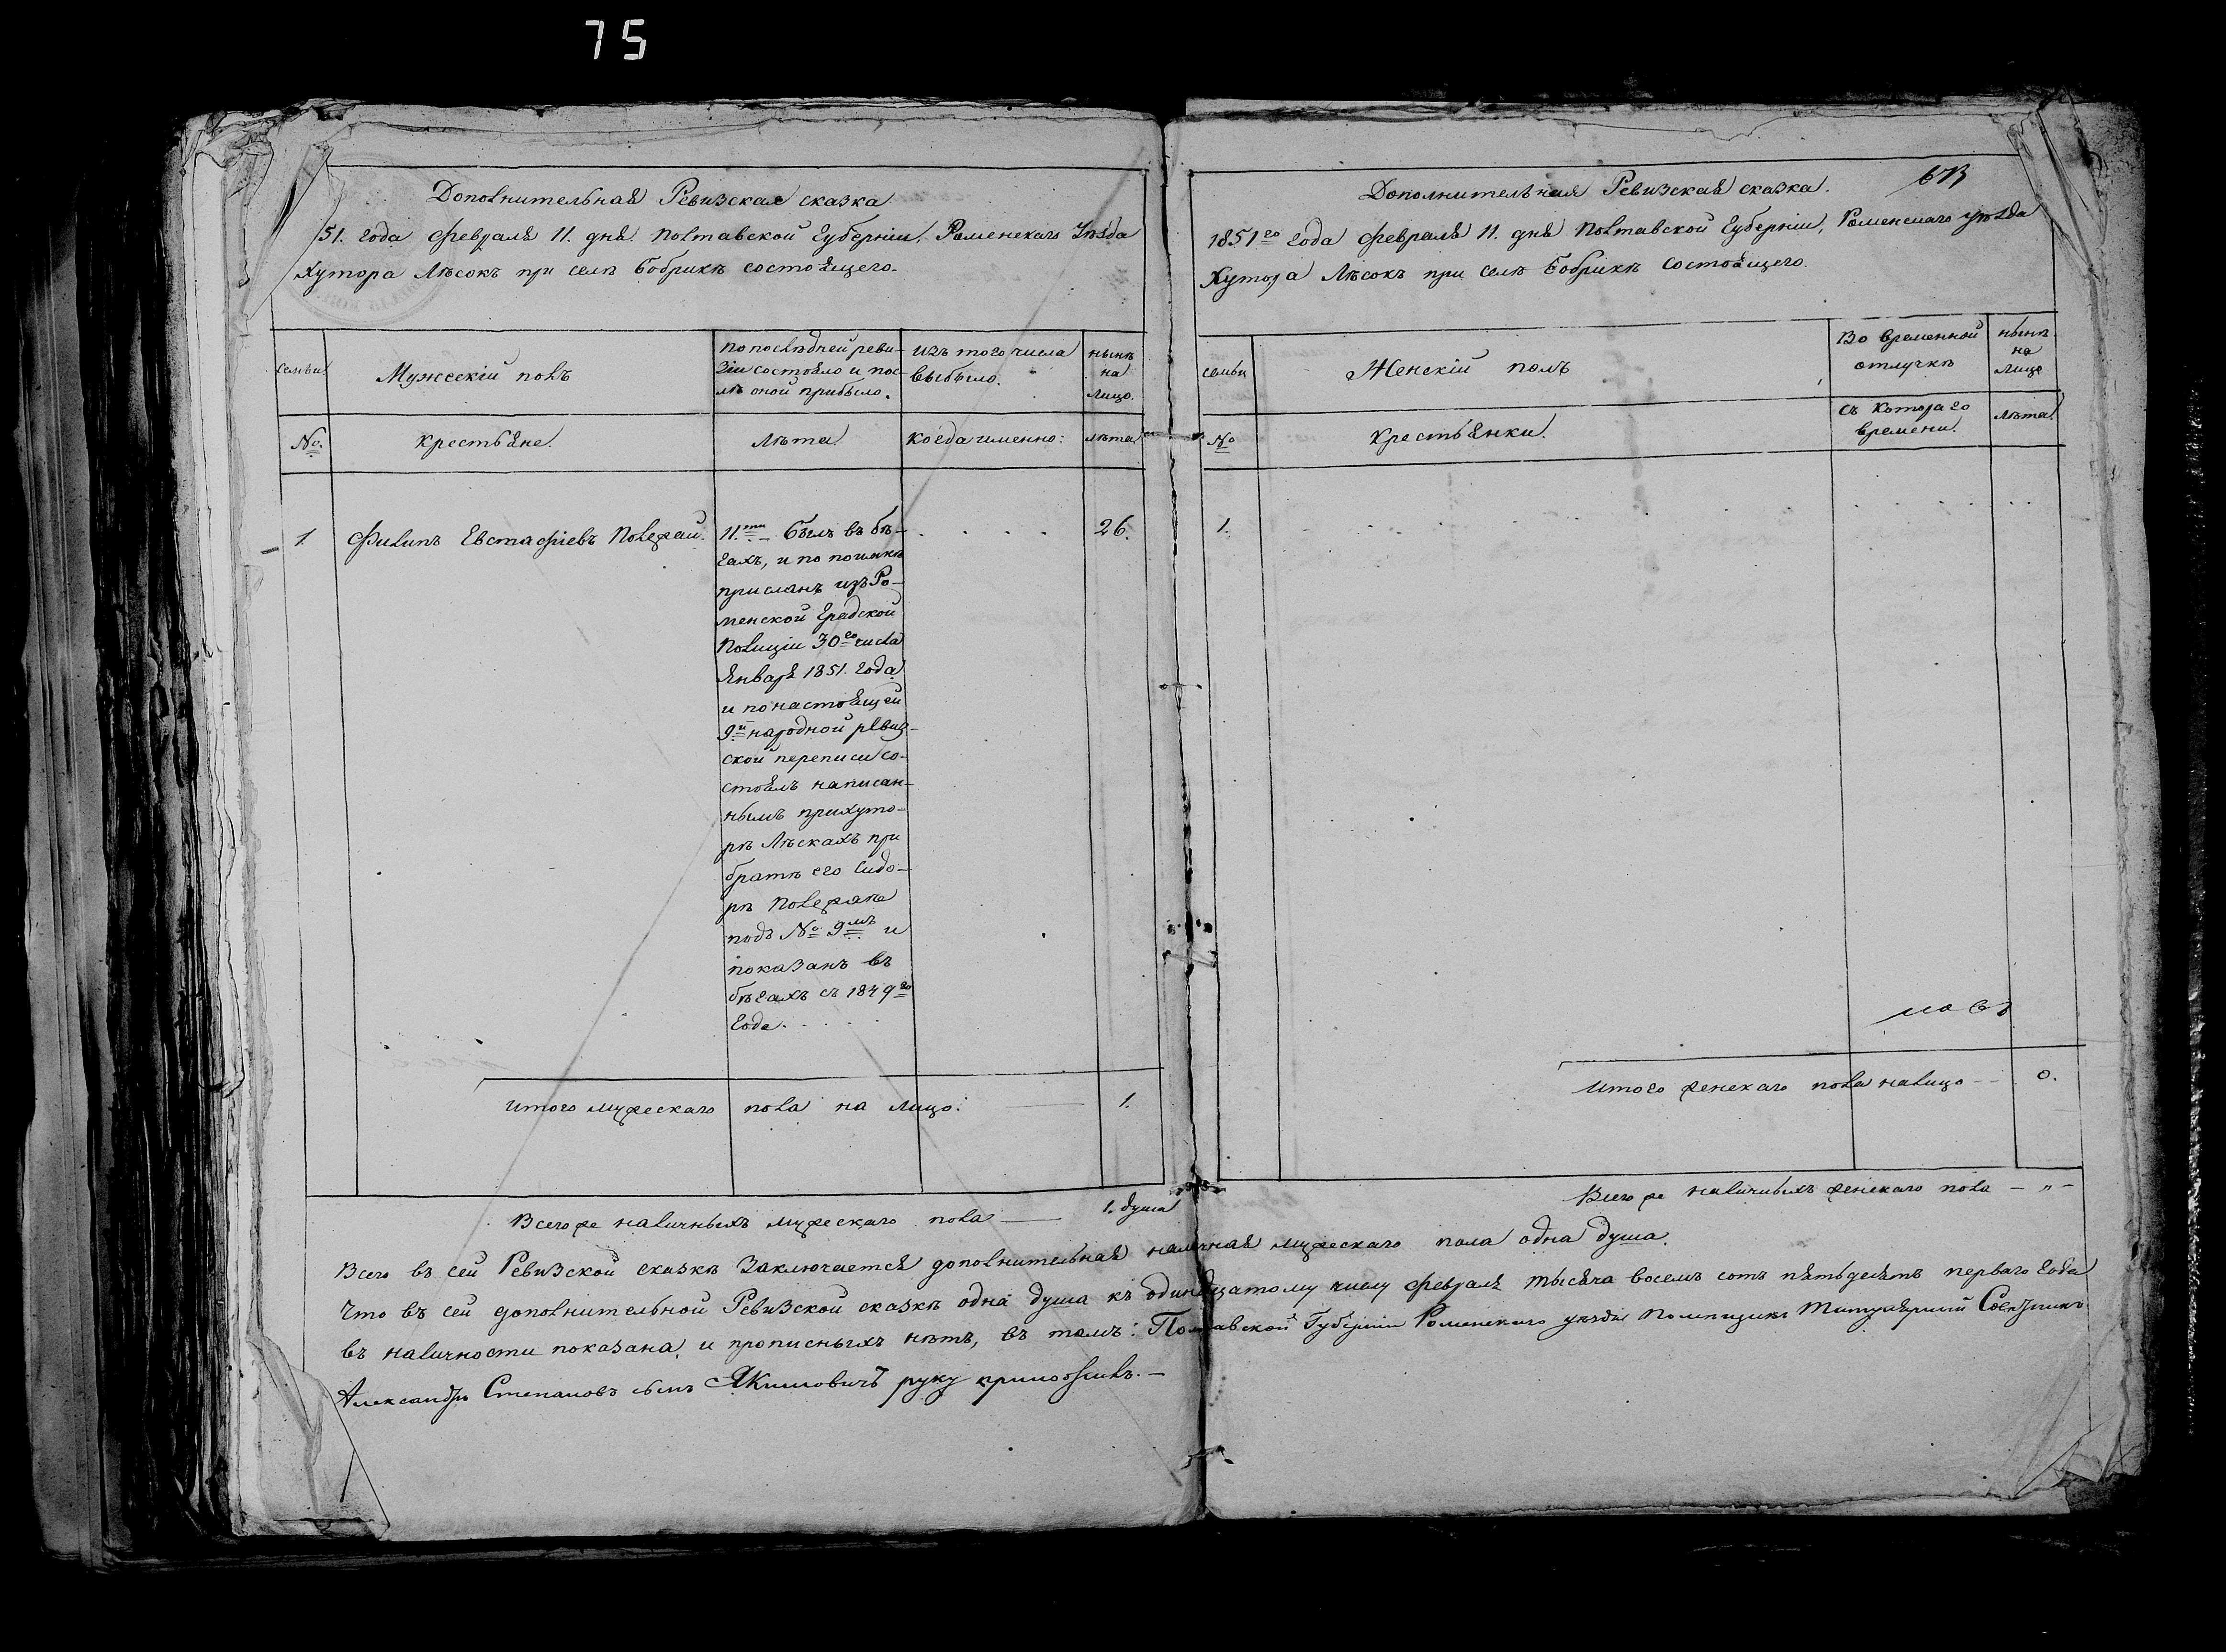 75
Дополнительная Ревизская сказка
51. года февраля 11. дня. Полтавской Губерніи. Роменскаго Уѣзда
Хутора Лѣсокъ при селѣ Бобрикѣ состоящего.
семьи
Мужескій полъ
по послѣдней реви-
зіи состояло и пос-
лѣ оной прибыло.
изъ того числа
выбыло.
нынѣ
на
лицо.
№
Крестьяне.
Лѣта
Когда именно:
лѣта
1.
Филипъ Евстафіевъ Полежай.
11.ти - былъ въ бѣ-
гахъ, и по поимкѣ
присланъ изъ Ро-
менской Градской
Полиціи 30го числа
Января 1851. года
и по настоящей
9й народной ревиз-
ской переписи со-
стоялъ написан-
нымъ при хуто-
рѣ Лѣскахъ при
братѣ его Сидо-
рѣ Полежаѣ
подъ № 9мъ и
показанъ въ
бѣгахъ съ 1849го
года.
26.
Итого мужескаго пола на лицо:
1.
Всего же наличныхъ мужескаго пола —
1. душа
Дополнительная Ревизская сказка.
1851го года февраля 11. дня Полтавской Губерніи, Роменскаго уѣзда
Хутора Лѣсокъ при селѣ Бобрикѣ состоящего.
семьи
Женскій полъ
Во временной
отлучкѣ
нынѣ
на
лице
№
Крестьянки.
съ котораго
времени.
Лѣта
1.
Итого женскаго пола налицо --
0.
Всего же наличныхъ женскаго пола - „ -
Всего въ сей Ревизской сказкѣ заключается дополнительная наличная мужескаго пола одна душа.
Что въ сей дополнительной Ревизской сказкѣ одна душа къ одинадцатому числу февраля тысяча восемь сотъ пятьдесятъ перваго года
въ наличности показана, и прописныхъ нѣтъ, въ томъ: Полтавской Губерніи Роменскаго уѣзда Помѣщикъ Титулярный Совѣтникъ
Александръ Степановъ сынъ Якимовичъ руку приложилъ. —